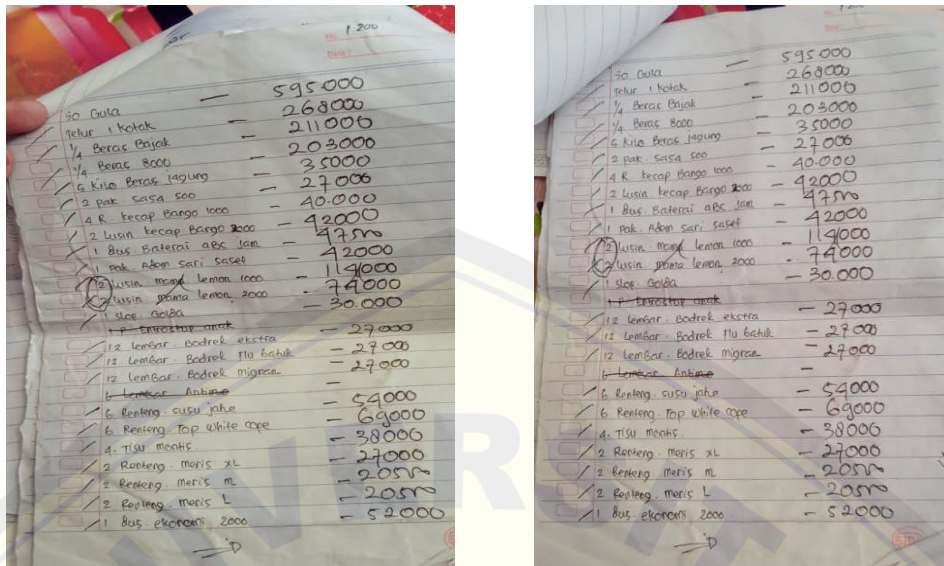 1200
No.
Date:
50 Gula — 595000
Telur 1 Kotak — 268000
1/4 Beras Bajak — 211000
1/4 Beras 8000 — 203000
5 Kilo Beras jagung — 35000
2 pak. sasa 500 — 27000
4 R kecap Bango 1000 — 40.000
2 Lusin kecap Bango 2000 — 42000
1 Bus. Baterai aBc Jam — 47500
1 Pak. Adem Sari saset — 42000
2 lusin mama lemon 1000 — 114000
2 lusin mama lemon 2000 - 74000
1 slop. GolBa — 30.000
1 P Entrostop anak
12 LemBar. Bodrek ekstra — 27000
12 LemBar. Bodrek Flu Batuk — 27000
12 LemBar. Bodrek migran — 27000
6 LemBar Antimo —
6 Renteng. susu jahe — 54000
6 Renteng. Top white cope — 69000
4. Tisu montis. — 38000
2 Renteng. meris XL — 27000
2 Renteng. meris M — 20500
2 Renteng. meris L — 20500
1 Bus. ekonomi 2000 — 52000
1200
50 Gula — 595000
Telur 1 Kotak — 268000
1/4 Beras Bajak — 211000
1/4 Beras 8000 — 203000
5 Kilo Beras jagung — 35000
2 pak. sasa 500 — 27000
4 R kecap Bango 1000 — 40.000
2 Lusin kecap Bango 2000 — 42000
1 Bus. Baterai aBc Jam — 47500
1 Pak. Adem Sari saset — 42000
2 lusin mama lemon 1000 - 114000
2 lusin mama lemon 2000 - 74000
1 slop GolBa — 30.000
1 P Entrostop anak
12 LemBar. Bodrek ekstra — 27000
12 LemBar. Bodrek Flu Batuk — 27000
12 LemBar. Bodrek migran — 27000
6 LemBar Antimo —
6 Renteng. susu jahe — 54000
6 Renteng. Top white cope — 69000
4. Tisu montis. — 38000
2 Renteng. meris XL — 27000
2 Renteng. meris M — 20500
2 Renteng. meris L — 20500
1 Bus. ekonomi 2000 — 52000